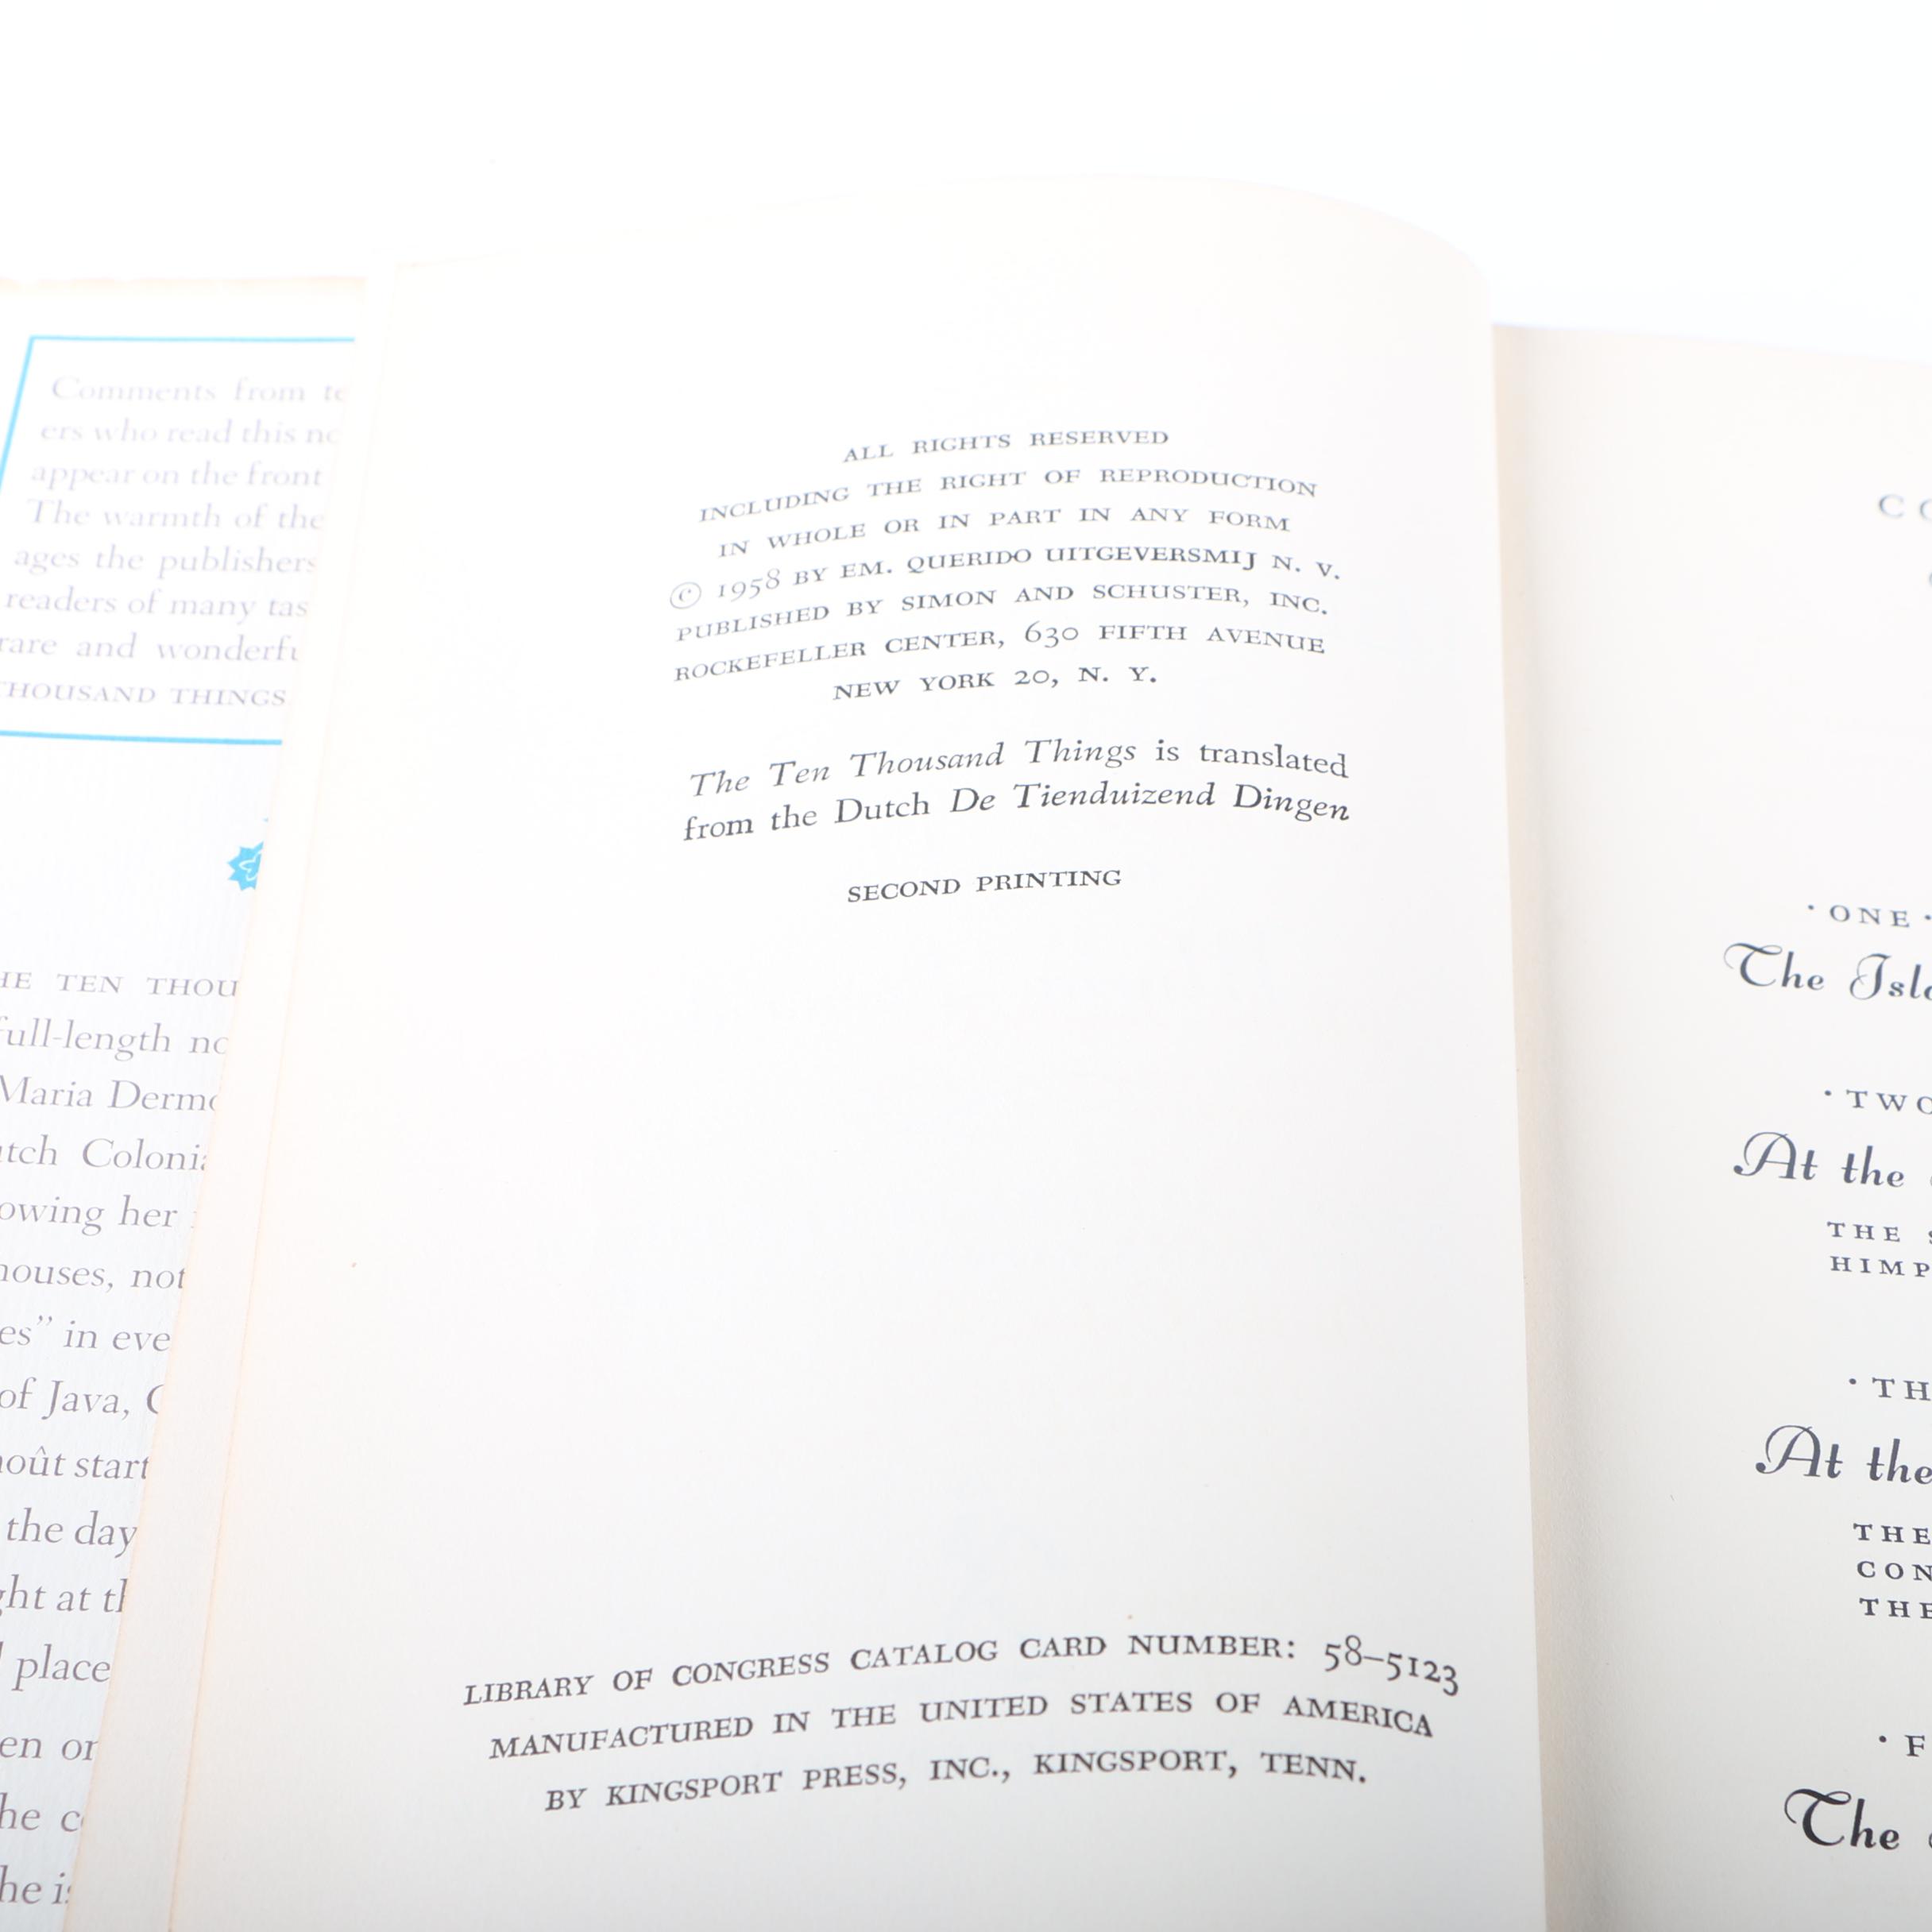 Comments from
ers who read this
appear on the front
The warmth of the
ages the publishers
readers of many
rare and
THOUSAND THINGS
TEN
full-length
Maria
her
houses, not
in
of Java,
start
the day
at
place
ALL RIGHTS RESERVED
INCLUDING THE RIGHT OF REPRODUCTION
IN WHOLE OR IN PART IN ANY FORM
© 1958 BY EM. QUERIDO UITGEVERSMIJ N. V.
PUBLISHED BY SIMON AND SCHUSTER, INC.
ROCKEFELLER CENTER, 630 FIFTH AVENUE
NEW YORK 20, N. Y.
The Ten Thousand Things is translated
from the Dutch De Tienduizend Dingen
SECOND PRINTING
LIBRARY OF CONGRESS CATALOG CARD NUMBER: 58–5123
MANUFACTURED IN THE UNITED STATES OF AMERICA
BY KINGSPORT PRESS, INC., KINGSPORT, TENN.
· ONE ·
The
· TWO
At the
THE
·
At the
THE
THE
·
The